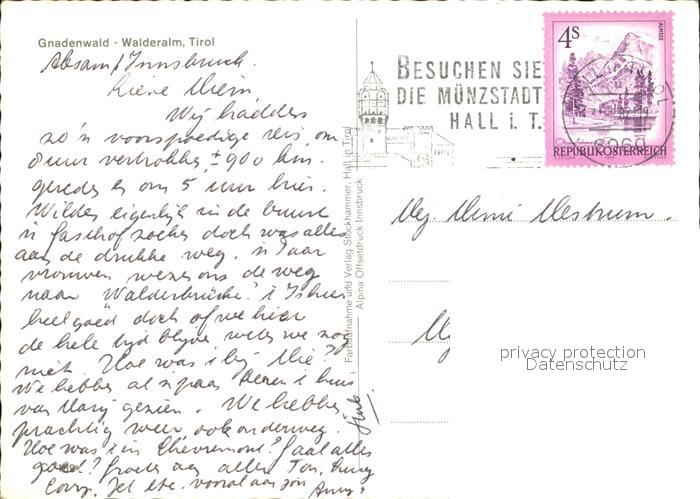 Gnadenwald - Walderalm, Tirol
Absam / Innsbruck.
Lieve Mein
Wij hadden
zo'n voorspoedige reis, om
8 uur vertrokken, ± 900 km.
gereden en om 5 uur hier.
Wilden eigenlijk in de buurt
'n gasthof zoeken doch was alles
aan de drukke weg. 'n Paar
vrouwen wezen ons de weg
naar "Walderbrücke". 't Is hier
heel goed doch of we hier
de hele tijd blijven weten we nog
niet. Hoe was 't bij
We hebben al 'n paar keren 't huis
van Marij gezien. We hebben
prachtig weer, ook onderweg.
Hoe was 't in Chèvremont? Gaat alles
goed? Groeten aan allen Ton,
vooral aan
Farbaufnahme und Verlag Stockhammer, Hall in Tirol
Alpina Offsetdruck Innsbruck
BESUCHEN SIE
DIE MÜNZSTADT
HALL i. T.
4S
ALMSEE
6060
REPUBLIK ÖSTERREICH
Mej. Mimi Mestrum.
privacy protection
Datenschutz